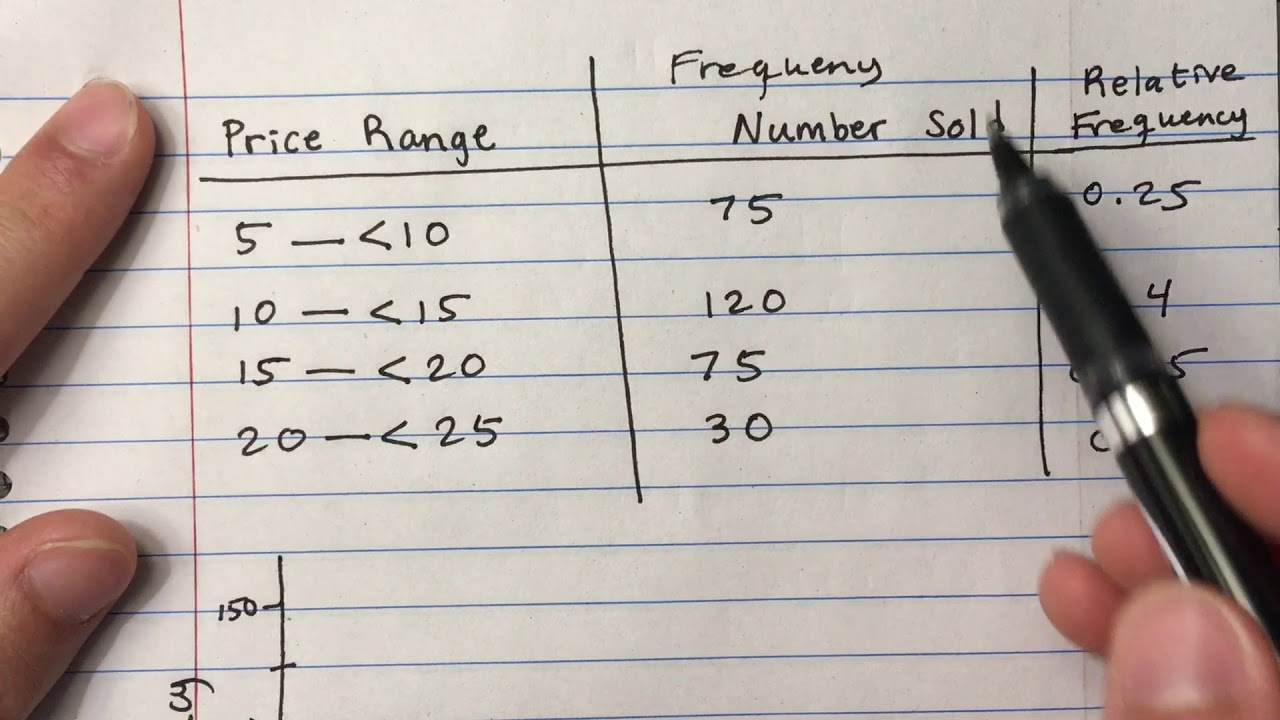 Frequeny
Relative
Price Range Number Sold Frequency
5 — <10 75 0.25
10 — <15 120 4
15 — <20 75 5
20 — <25 30
150